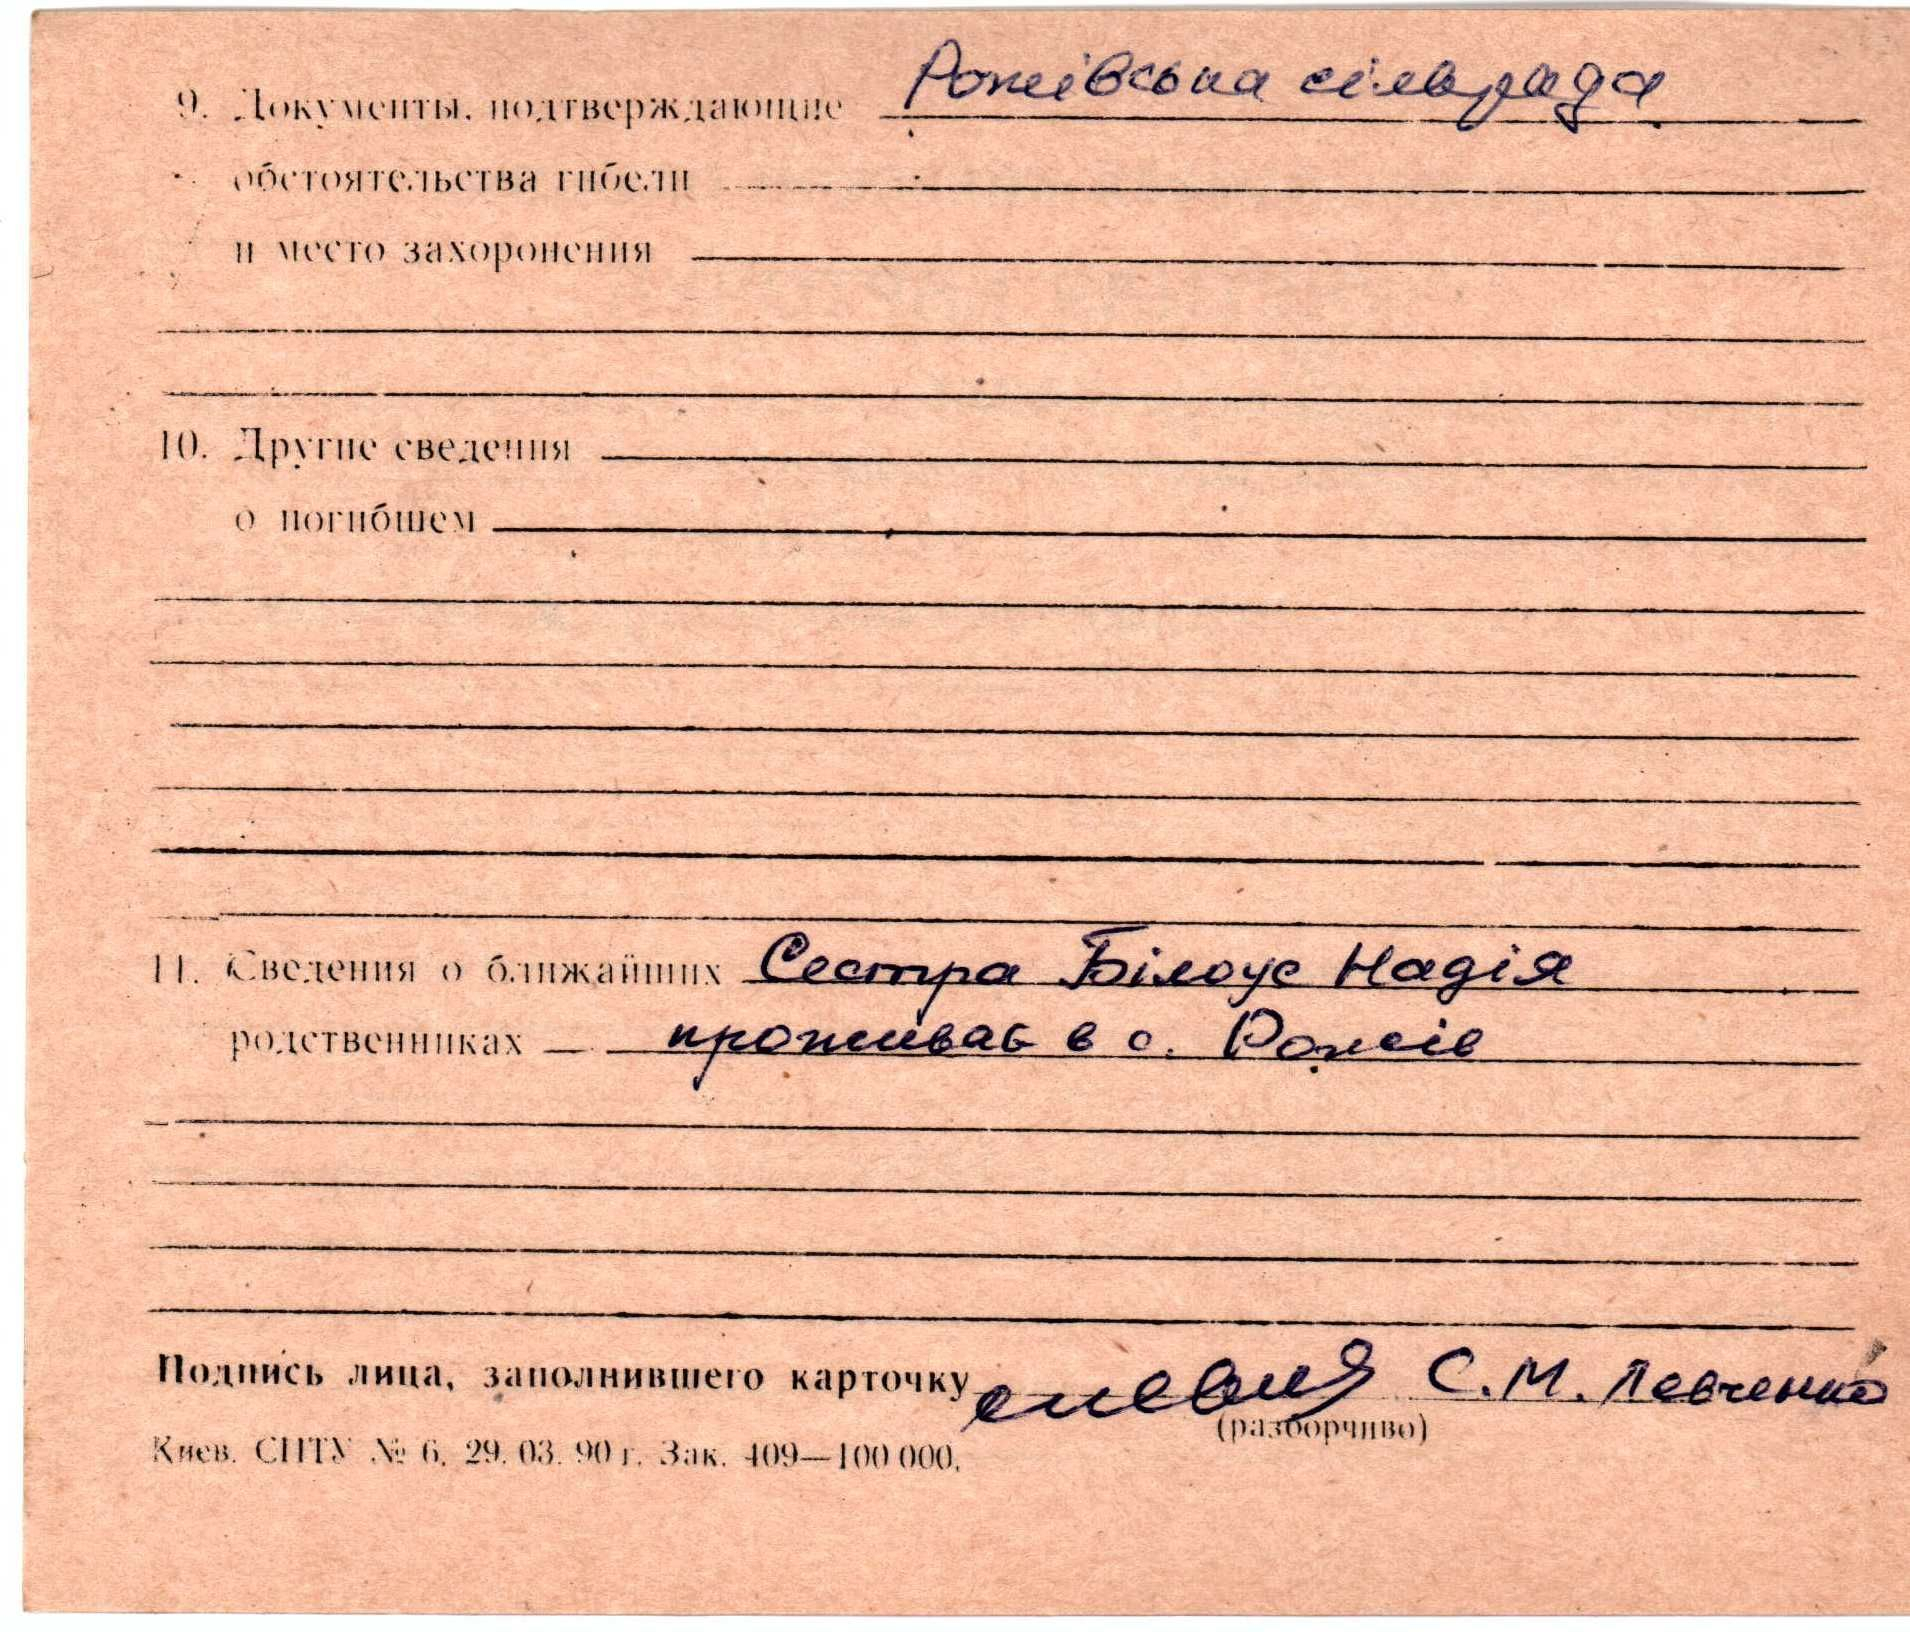 9. Документы, подтверждающие Рожівська сільрада
обстоятельства гибели
и место захоронения
10. Другие сведения
о погибшем
11. Сведения о ближайших Сестра Білоус Надія
родственниках проживає в с. Рожів
Подпись лица, заполнившего карточку С.М. Левченко
(разборчиво)
Киев. СПТУ № 6. 29. 03. 90 г. Зак. 409—100 000.